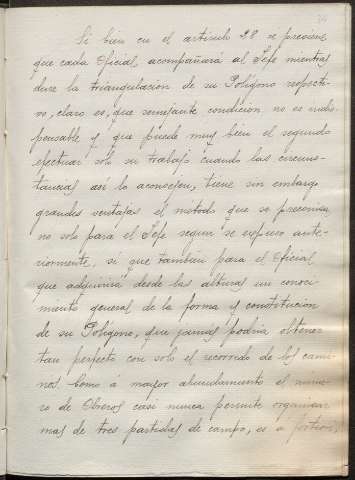 Si bien en el artículo 28 se previene
que cada Oficial acompañará al Jefe mientras
dure la triangulacion de su Polígono respecti-
vo, claro es, que semejante condicion no es indis-
pensable y que puede muy bien el segundo
efectuar solo su trabajo cuando las circuns-
tancias así lo aconsejen, tiene sin embargo
grandes ventajas el método que se preconiza
no solo para el Jefe segun se expuso ante-
riormente, si que tambien para el Oficial
que adquirirá desde las alturas un conoci-
miento general de la forma y constitucion
de su Polígono, que jamás podria obtener
tan perfecto con solo el recorrido de los cami-
nos. Como á mayor abundamiento el núme-
ro de Obreros casi nunca permite organizar
mas de tres partidas de campo, es a fortiori,